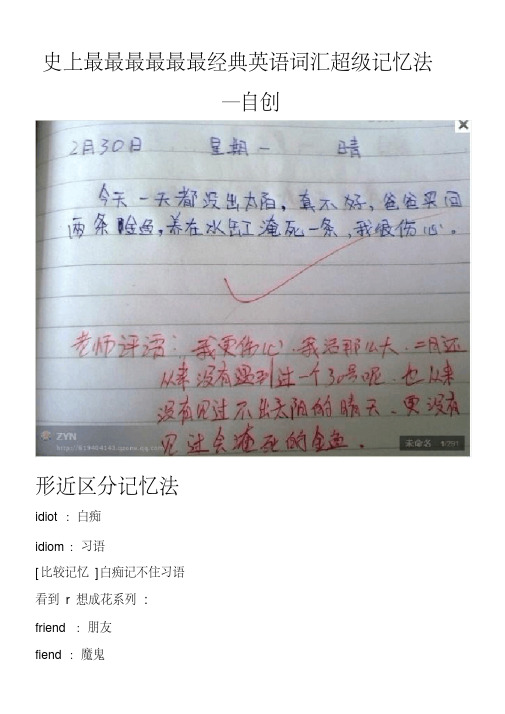 史上最最最最最最经典英语词汇超级记忆法
—自创
2月30日 星期一 晴
今天一天都没出太阳，真不好，爸爸买回
两条金鱼，养在水缸淹死一条，我很伤心。
老师评语：我更伤心，我活那么大，二月还
从来没有遇到过一个30号呢，也从来
没有见过不出太阳的晴天，更没有
见过会淹死的金鱼。
ZYN
http://619404143.qzone.qq.com
未命名 1/291
形近区分记忆法
idiot ：白痴
idiom ：习语
[ 比较记忆 ]白痴记不住习语
看到 r 想成花系列 ：
friend ：朋友
fiend ：魔鬼